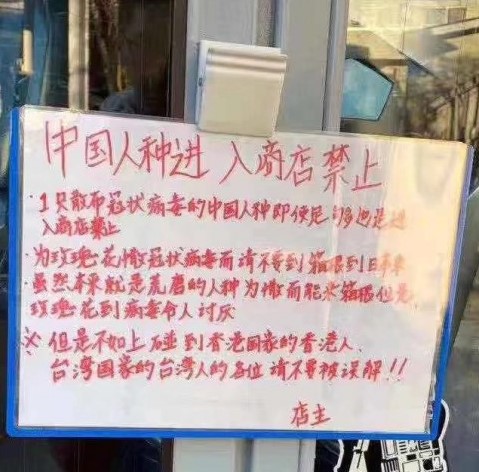 中国人种进 入商店禁止
·1只散布冠状病毒的中国人种即使是 也是进
入商店禁止
·为玫瑰花撒冠状病毒而请不要到箱根到日本来
·虽然本来就是荒磨的人种为撒而能来箱根但是,
玫瑰花到病毒令人讨厌
※ 但是不如上碰到香港国家的香港人、
台湾国家的台湾人的各位请不要被误解!!
店主